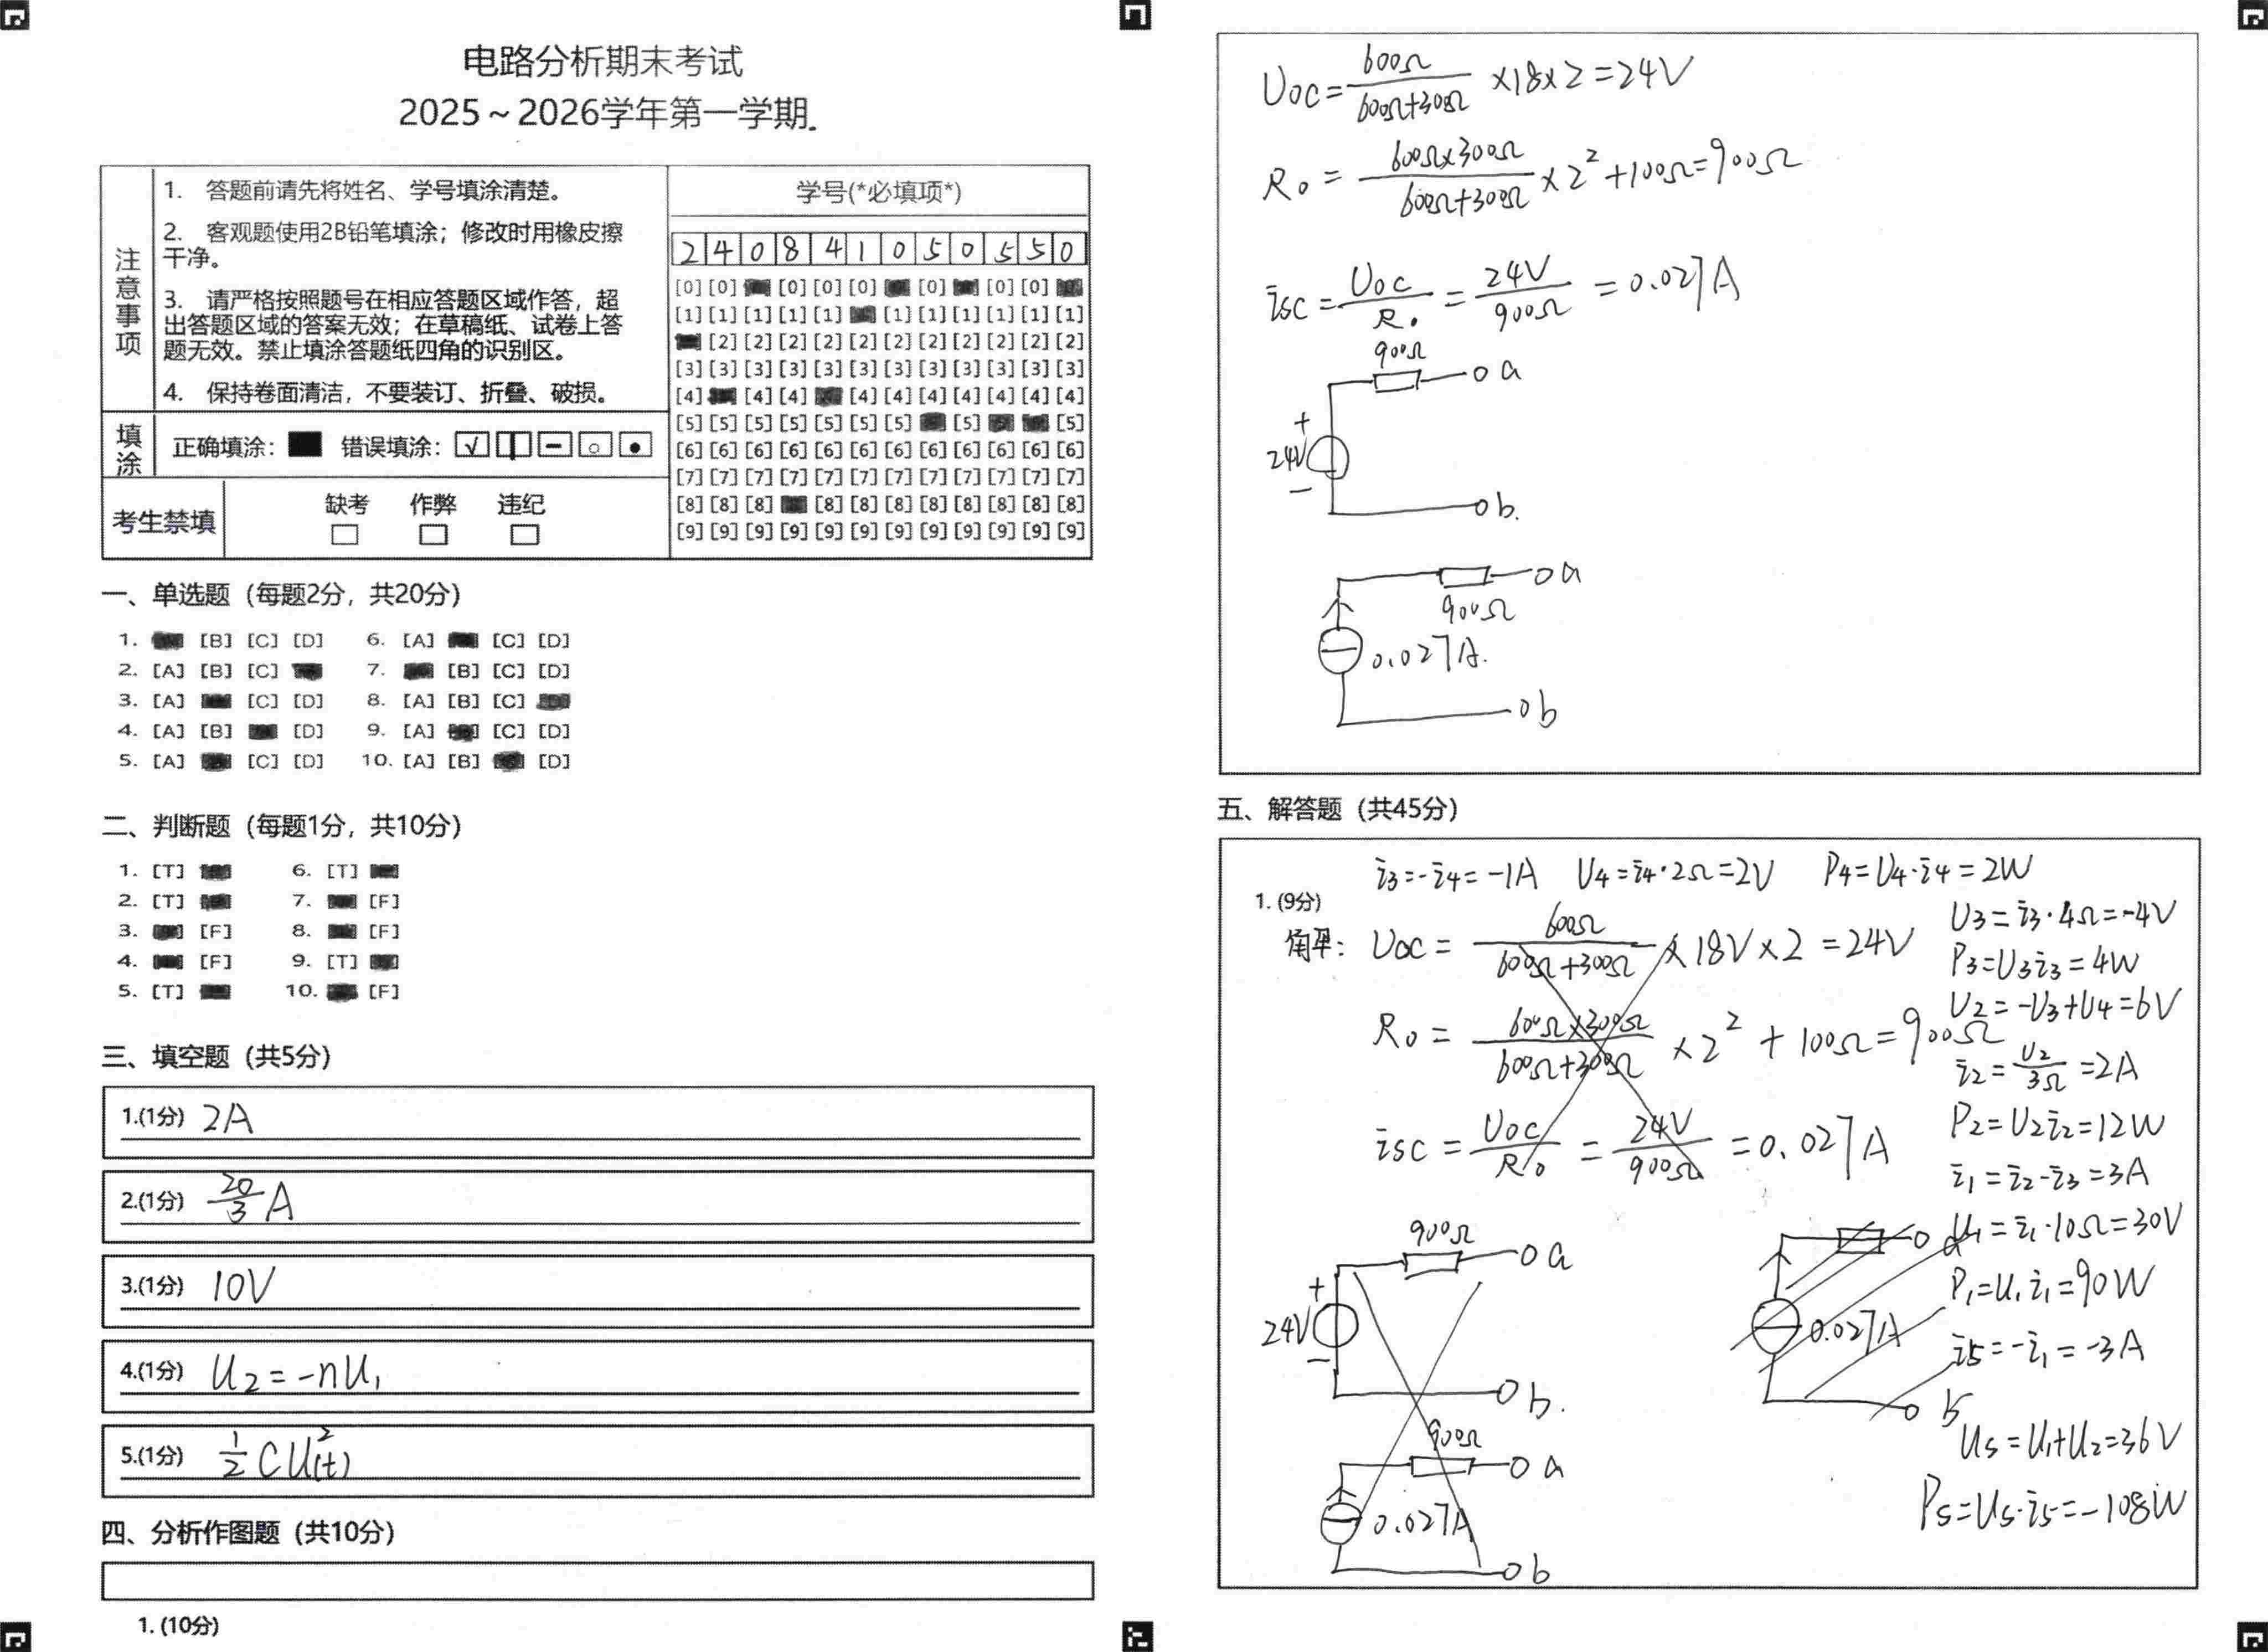 电路分析期末考试
2025～2026学年第一学期.
注意事项
1. 答题前请先将姓名、学号填涂清楚。
2. 客观题使用2B铅笔填涂；修改时用橡皮擦
干净。
3. 请严格按照题号在相应答题区域作答，超
出答题区域的答案无效；在草稿纸、试卷上答
题无效。禁止填涂答题纸四角的识别区。
4. 保持卷面清洁，不要装订、折叠、破损。
填涂 正确填涂： 错误填涂：
考生禁填 缺考 作弊 违纪
学号(*必填项*)
2 4 0 8 4 1 0 5 0 5 5 0
[0] [0] [0] [0] [0] [0] [0] [0]
[1] [1] [1] [1] [1] [1] [1] [1] [1] [1] [1]
[2] [2] [2] [2] [2] [2] [2] [2] [2] [2] [2]
[3] [3] [3] [3] [3] [3] [3] [3] [3] [3] [3] [3]
[4] [4] [4] [4] [4] [4] [4] [4] [4] [4]
[5] [5] [5] [5] [5] [5] [5] [5] [5]
[6] [6] [6] [6] [6] [6] [6] [6] [6] [6] [6] [6]
[7] [7] [7] [7] [7] [7] [7] [7] [7] [7] [7] [7]
[8] [8] [8] [8] [8] [8] [8] [8] [8] [8] [8]
[9] [9] [9] [9] [9] [9] [9] [9] [9] [9] [9] [9]
一、单选题（每题2分，共20分）
1. [B] [C] [D] 6. [A] [C] [D]
2. [A] [B] [C] 7. [B] [C] [D]
3. [A] [C] [D] 8. [A] [B] [C]
4. [A] [B] [D] 9. [A] [C] [D]
5. [A] [C] [D] 10. [A] [B] [D]
二、判断题（每题1分，共10分）
1. [T] 6. [T]
2. [T] 7. [F]
3. [F] 8. [F]
4. [F] 9. [T]
5. [T] 10. [F]
三、填空题（共5分）
1.(1分) 2A
2.(1分) 20/3 A
3.(1分) 10V
4.(1分) U₂=-nU₁
5.(1分) 1/2 CU²(t)
四、分析作图题（共10分）
1. (10分)
Uoc=600Ω/(600Ω+300Ω) ×18×2=24V
R₀=(600Ω×300Ω)/(600Ω+300Ω)×2²+100Ω=900Ω
isc=Uoc/R₀=24V/900Ω=0.027A
900Ω
a
+
24V
-
b.
a
900Ω
0.027A.
b
五、解答题（共45分）
i₃=-i₄=-1A U₄=i₄·2Ω=2V P₄=U₄·i₄=2W
1. (9分)
解: Uoc=600Ω/(600Ω+300Ω)×18V×2=24V
R₀=(600Ω×300Ω)/(600Ω+300Ω)×2²+100Ω=900Ω
isc=Uoc/R₀=24V/900Ω=0.027A
900Ω
a
+
24V
-
b.
900Ω
a
0.027A
b
a
0.027A
b
U₃=i₃·4Ω=-4V
P₃=U₃i₃=4W
U₂=-U₃+U₄=6V
i₂=U₂/3Ω=2A
P₂=U₂i₂=12W
i₁=i₂-i₃=3A
U₁=i₁·10Ω=30V
P₁=U₁i₁=90W
i5=-i₁=-3A
U5=U₁+U₂=36V
P5=U5·i5=-108W